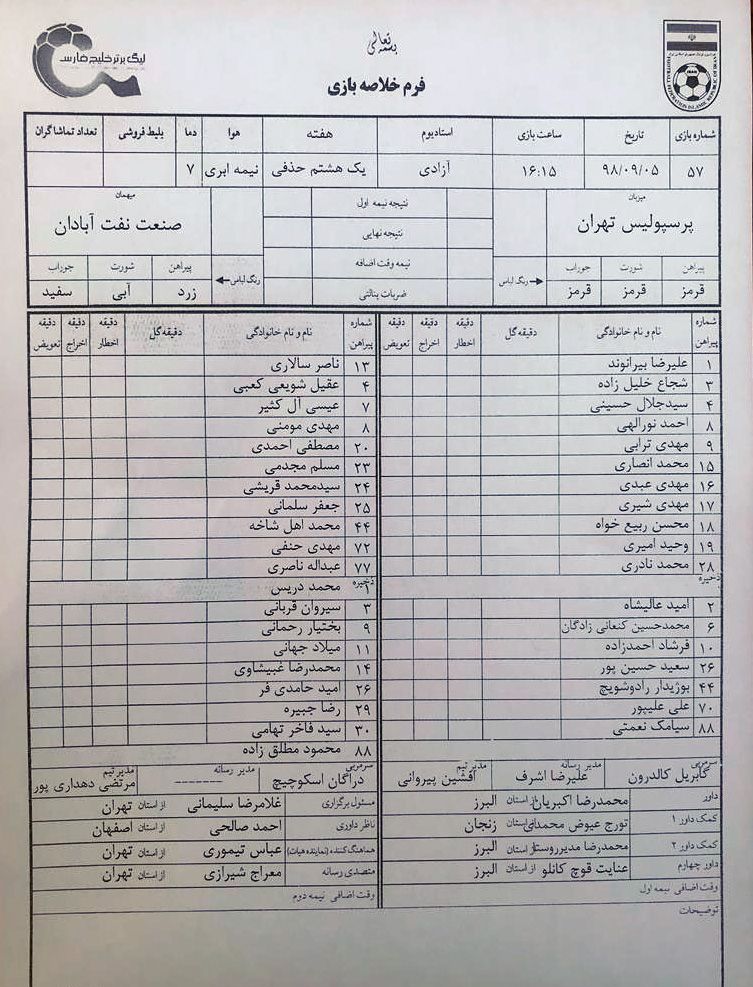 بسمه تعالی
لیگ برتر خلیج فارس
FOOTBALL FEDERATION ISLAMIC REPUBLIC OF IRAN
IRAN
فرم خلاصه بازی
شماره بازی تاریخ ساعت بازی استادیوم هفته هوا دما بلیط فروشی تعداد تماشاگران
۵۷ ۹۸/۰۹/۰۵ ۱۶:۱۵ آزادی یک هشتم حذفی نیمه ابری ۷
میزبان نتیجه نیمه اول میهمان
پرسپولیس تهران نتیجه نهایی صنعت نفت آبادان
پیراهن شورت جوراب رنگ لباس نیمه وقت اضافه رنگ لباس پیراهن شورت جوراب
قرمز قرمز قرمز ضربات پنالتی زرد آبی سفید
شماره پیراهن نام و نام خانوادگی دقیقه گل دقیقه اخطار دقیقه اخراج دقیقه تعویض
۱ علیرضا بیرانوند
۳ شجاع خلیل زاده
۴ سیدجلال حسینی
۸ احمد نورالهی
۹ مهدی ترابی
۱۵ محمد انصاری
۱۶ مهدی عبدی
۱۷ مهدی شیری
۱۸ محسن ربیع خواه
۱۹ وحید امیری
۲۸ محمد نادری
ذخیره
۲ امید عالیشاه
۶ محمدحسین کنعانی زادگان
۱۰ فرشاد احمدزاده
۲۶ سعید حسین پور
۴۴ بوژیدار رادوشویچ
۷۰ علی علیپور
۸۸ سیامک نعمتی
سرمربی گابریل کالدرون مدیر رسانه علیرضا اشرف مدیر تیم افشین پیروانی
داور محمدرضا اکبریان از استان البرز
کمک داور ۱ تورج عیوض محمدی از استان زنجان
کمک داور ۲ محمدرضا مدیرروستا از استان البرز
داور چهارم عنایت قوچ کانلو از استان البرز
وقت اضافی نیمه اول
توضیحات
شماره پیراهن نام و نام خانوادگی دقیقه گل دقیقه اخطار دقیقه اخراج دقیقه تعویض
۱۳ ناصر سالاری
۴ عقیل شویعی کعبی
۷ عیسی آل کثیر
۸ مهدی مومنی
۲۰ مصطفی احمدی
۲۳ مسلم مجدمی
۲۴ سیدمحمد قریشی
۲۵ جعفر سلمانی
۴۴ محمد اهل شاخه
۷۲ مهدی حنفی
۷۷ عبداله ناصری
ذخیره
۱ محمد دریس
۳ سیروان قربانی
۹ بختیار رحمانی
۱۱ میلاد جهانی
۱۴ محمدرضا غبیشاوی
۲۶ امید حامدی فر
۲۹ رضا جبیره
۳۰ سید فاخر تهامی
۸۸ محمود مطلق زاده
سرمربی دراگان اسکوچیچ مدیر رسانه ------- مدیر تیم مرتضی دهداری پور
مسئول برگزاری غلامرضا سلیمانی از استان تهران
ناظر داوری احمد صالحی از استان اصفهان
هماهنگ کننده (نماینده هیات) عباس تیموری از استان تهران
متصدی رسانه معراج شیرازی از استان تهران
وقت اضافی نیمه دوم